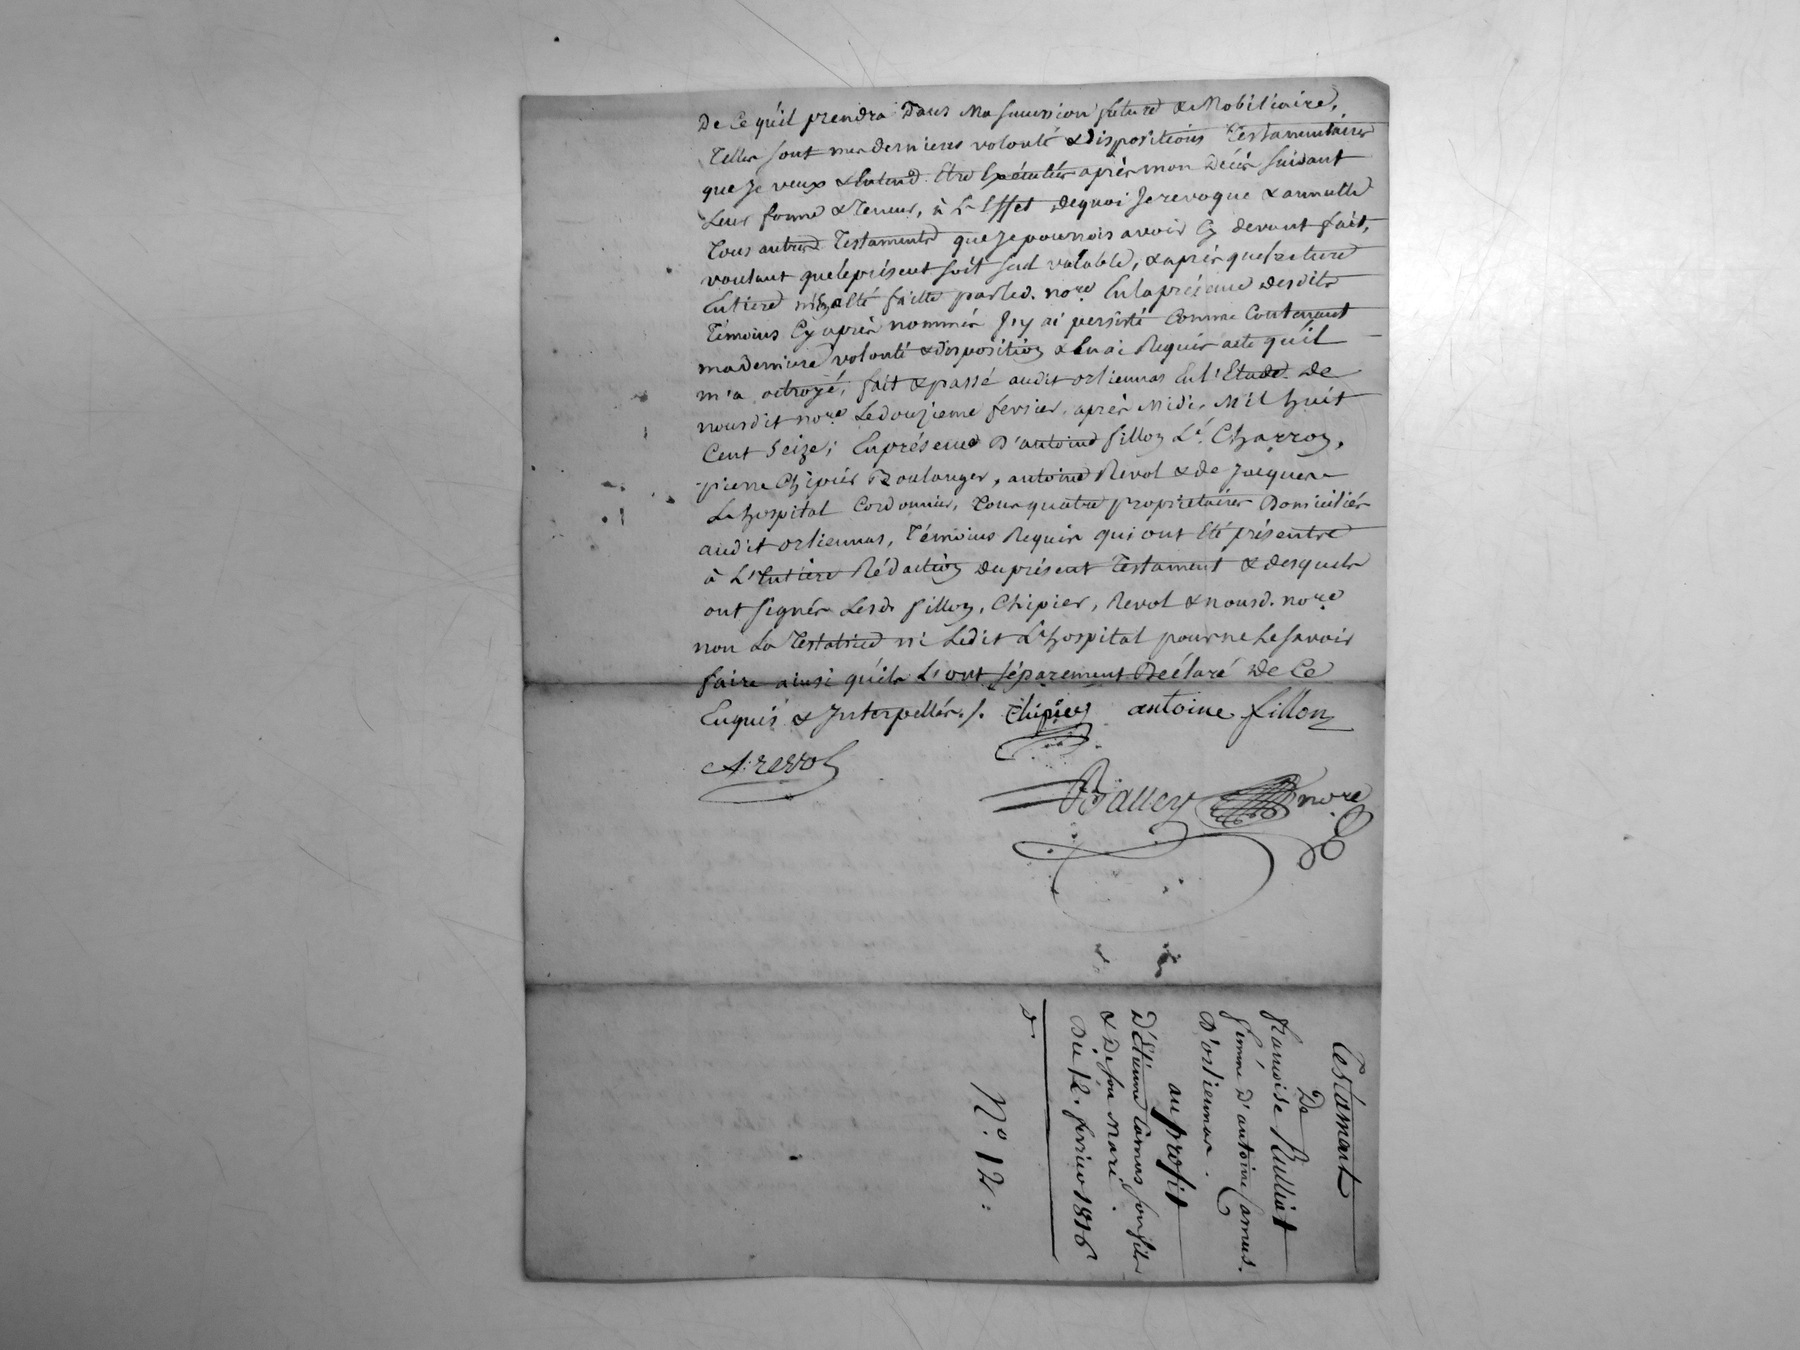 De Ce qu'il prendra Dans Ma succession future & Mobiliaire,
Telles sont mes dernieres volonté & dispositions Testamentaires
que je veux & Entend Etre Exécutés après mon Décès suivant
Leur forme & Teneur, à L'Effet dequoi Je revoque & annulle
Tous autres Testaments que Je pourrois avoir Cy devant fait,
voulant que le présent soit seul valable, & après que lecture
Entiere m'a été faitte par led. nore. En la présence desdits
Témoins Cy après nommés J'y ai persisté Comme Contenant
ma derniere volonté & disposition & En ai Requis acte qu'il
m'a octroyé, fait & passé audit orliennas En l'Etude De
nousdit nore. Le douzieme fevrier après Midi, Mil huit
Cent Seize; En présence D'antoine fillon Charron,
pierre Chipier Boulanger, antoine Revol & de Jacques
L'hospital Cordonnier, Tous quatre propriétaires Domiciliés
audit orliennas, Témoins Requis qui ont Eté présents
à L'Entière Rédaction du présent Testament & desquels
ont signés Lesd. fillon, Chipier, Revol & nousd. nore.
non La Testatrice ni Ledit L'hospital pour ne Le savoir
faire ainsi qu'ils L'ont séparement Déclaré De Ce
Enquis & Interpellés./. Chipier antoine fillon
A: revol
Balley nore
Testament
De
francoise Rulliat
femme D'antoine Camus.
D'orliennas.
au profit
D'Etienne Camus son fils
& De son Mari.
Du 12. fevrier 1816
No. 12: